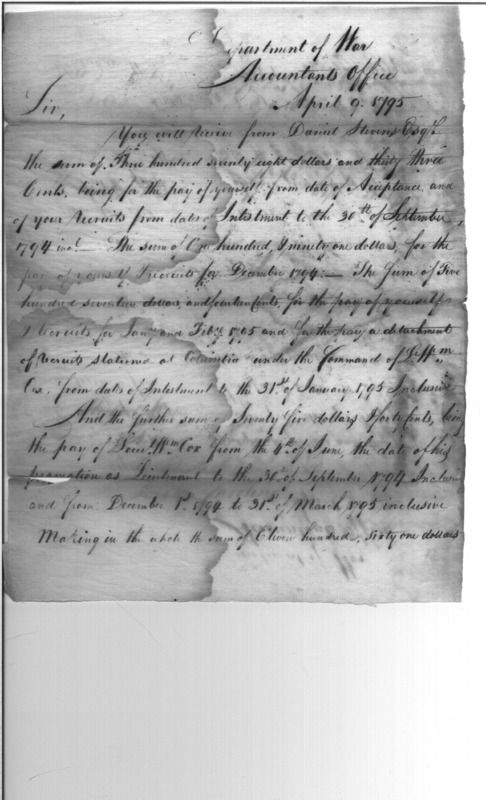 Department of War
Accountants Office
April 9. 1795
Sir,
You will receive from Daniel Stevens Esqr.
the sum of Three hundred seventy eight dollars and thirty three
Cents, being for the pay of yourself from date of Acceptance, and
of your Recruits from dates of Inlistment to the 30th of September
1794 incl. — The sum of One hundred, & ninety one dollars, for the
pay of yourself & recruits for December 1794. — The Sum of Five
hundred seventeen dollars, and fourteen Cents, for the pay of yourself
& Recruits for Jany. and Feby. 1795 and for the pay a detachment
of Recruits stationed at Columbia under the Command of Wm.
Cox, from dates of Inlistment to the 31st. of January 1795 Inclusive
And the further sum of Seventy five dollars & forty Cents, being
the pay of Lieut. Wm. Cox from the 4th. of June, the date of his
promotion as Lieutenant to the 30th of September 1794 Inclusive
and from December 1st. 1794 to 31st. of March 1795 inclusive
Making in the whole the sum of Eleven hundred, sixty one dollars